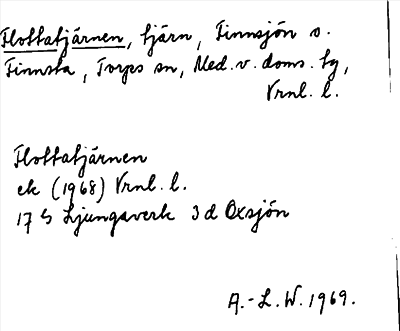 Flottatjärnen, tjärn, Finnsjön o.
Finnsta, Torps sn, Med. v. doms. tg,
Vrnl. l.
Flottatjärnen
ek (1968) Vrnl. l.
17 G Ljungaverk 3d Oxsjön
A.-L.W. 1969.